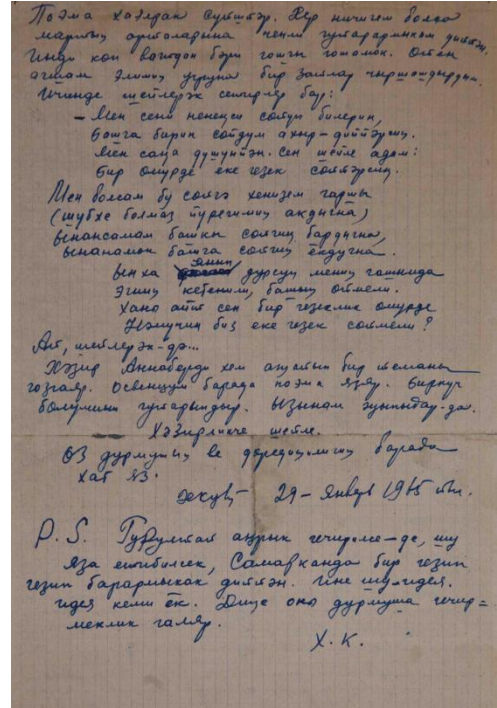 Поэма хәзирәк сүйшйәр. Хер ничигем болса
мартың орталарына ченли гутарарынкам диййән.
Инди көп вагтдан бәри гошгы гошамок. Өтен
агшам Элиниң угруна бир затлар чыршандырдым.
Ичинде шейлерәк сетирлер бар:
— Мен сени ненеңси сөйүп билерин,
Башга бирин сөйдүм ахыр-диййәрсиң.
Мен саңа душунйән. Сен шейле адам:
Бир өмүрде еке гезек сөййәрсиң.
Мен болсам бу сөзге хенизем гаршы
(шүбхе болмаз йүрегимиң акдыгна)
Ынансамам башкы сөйгиң бардыгна,
ынанамок башга сөйгиң ёкдугна.
Ын ха яныңда дурсуң мениң гашымда
Эгниң кетенили, башың өймели.
Хано айт сен бир гезеклик өмүрде
Нәмүчин биз еке гезек сөймели?
Ай, шейлерәк-дә...
Хәзир Аннаберди хем агуатын бир теманы
гозгаяр. Освенцум барада поэма язяр. Бирнуч
бөлүмини гутарыпдыр. Ызынам эуныпдыр-да.
Хәзирликче шейле.
Өз дурмушың ве дөредижилигиң барада
хат яз.
29 – январь 1965 йыл.
P.S. Гурултай аңрык гечирилсе-де, шу
яза етибилсек, Самарканда бир гезип
гезип барармыкак диййән. Ине шу идея.
идея кеми ёк. Диңе оны дурмуша гечир=
меклик галяр.
Х.К.